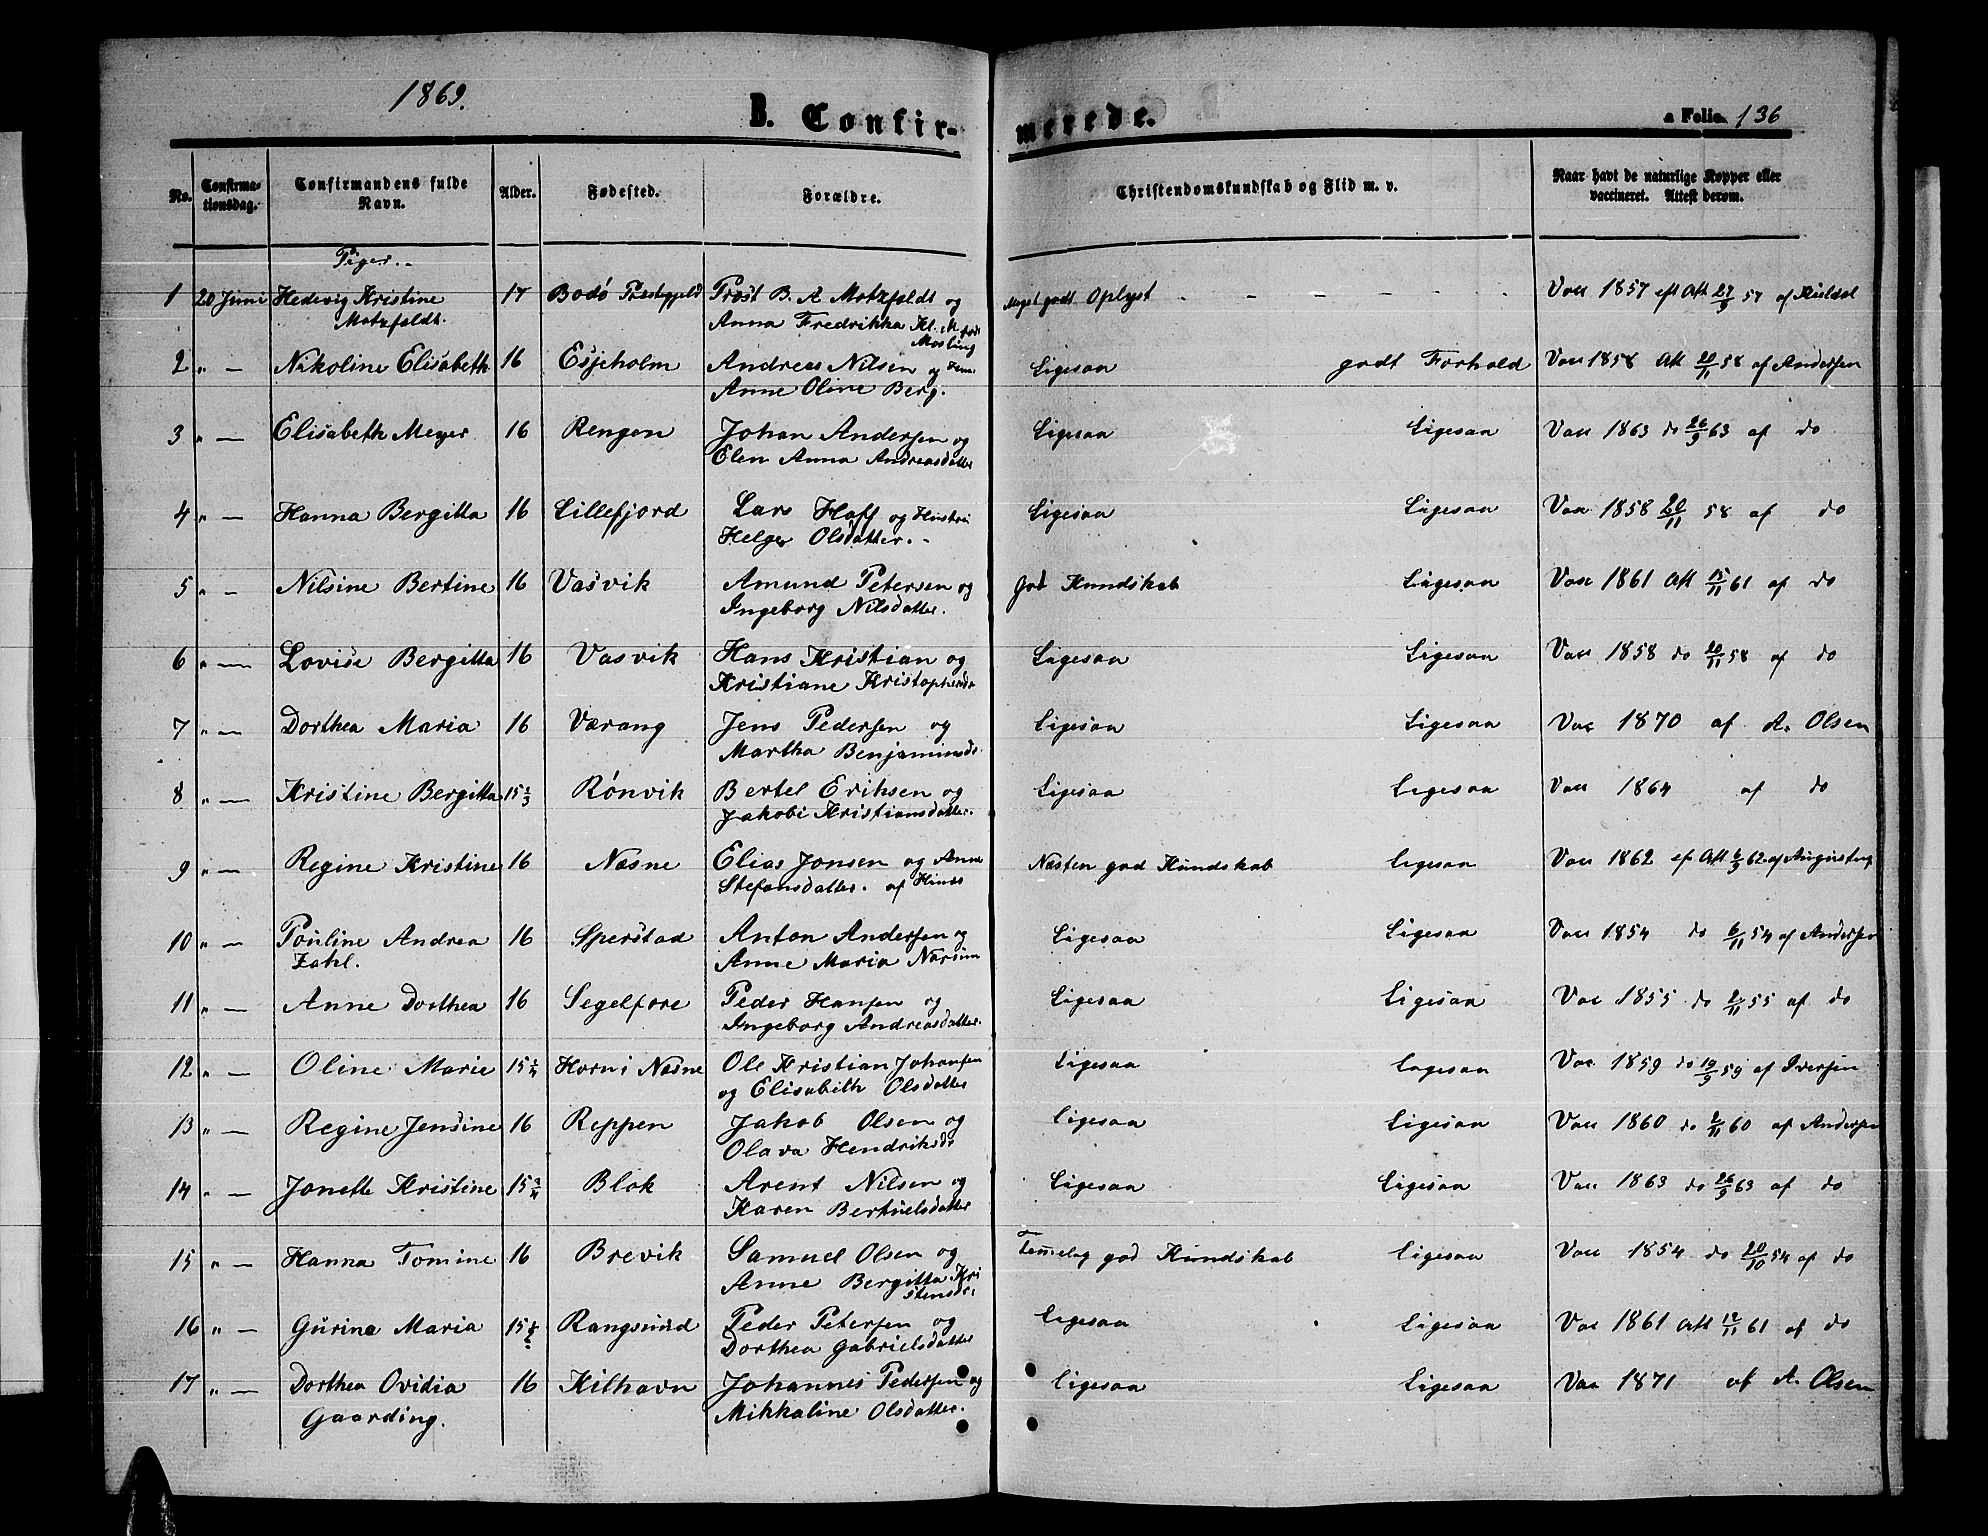 1869.
B. Confir-
merede.
a Folio. 136
No. Confirma- Confirmandens fulde Alder. Fødested. Forældre. Christendomskundskab og Flid m. v. Naar havt de naturlige Kopper eller
tionsdag. Navn. vaccineret. Attest derom.
Piger.
1 20 Juni Hedevig Kristine 17 Bodø Prestegjeld Prost B. A Motzfeldt og Meget godt Oplyst - - - - - Vac 1857 eft Att 27/9 57 af
Motzfeldt. Anna Fredrikka Kl. M født
Mosling
2 " — Nikoline Elisabeth 16 Esjeholm Andreas Nilsen og Ligesaa godt Forhold Vac 1858 Att 20/11 58 af Andersen
Anne Oline Berg.
3 " — Elisabeth Meyer 16 Rengen Johan Andersen og Ligesaa Ligesaa Vac 1863 do 26/9 63 af do
Elen Anna Andreasdatter
4 " — Hanna Bergitta 16 Lillefjord Lars Hoff og Hustru Ligesaa Ligesaa Vac 1858 20/11 58 af do
Helger Olsdatter.-
5 " — Nilsine Bertine 16 Vasvik Amund Petersen og god Kundskab Ligesaa Vac 1861 Att 15/11 61 af do
Ingeborg Nilsdatter.
6 " — Lovise Bergitta 16 Vasvik Hans Kristian og Ligesaa Ligesaa Vac 1858 do 20/11 58 af do
Kristiane Kristophersd
7 " — Dorthea Maria 16 Værang Jens Pedersen og Ligesaa Ligesaa Vac 1870 af A. Olsen
Martha Benjaminsd.
8 " — Kristine Bergitta 15 2/3 Rønvik Bertel Eriksen og Ligesaa Ligesaa Vac 1864 af do
Jakobi Kristiansdatter.
9 " — Regine Kristine 16 Næsne Elias Jonsen og Anne Næsten god Kundskab ligesaa Vac 1862 ef Att 6/9 62 af
Stefansdatter. af Hinds
10 " — Pouline Andrea 16 Sperstad Anton Andersen og Ligesaa Ligesaa Vac 1854 do 6/11 54 af Andersen
Zahl. Anne Maria
11 " — Anne Dorthea 16 Segelfore Peder Hansen og Ligesaa Ligesaa Vac 1855 do 2/11 55 af do
Ingeborg Andreasdatter.
12 " — Oline Marie 15 Horn i Næsne Ole Kristian Johansen Ligesaa Lagesaa Vac 1859 do 19/9 59 af Iversen
og Elisabeth Olsdatter
13 " — Regine Jensine 16 Reppen Jakob Olsen og Ligesaa Ligesaa Vac 1860 do 2/11 60 af Andersen
Olava Hendriksd
14 " — Jonette Kristine 15 Blok Arent Nilsen og Ligesaa Ligesaa Vac 1863 do 26/9 63 af do
Karen Bertuelsdatter
15 " — Hanna Tomine 16 Brevik Samuel Olsen og Temelag god Kundskab Ligesaa Vac 1854 do 20/10 54 af do
Anne Bergitta Kri
stensd.
16 " — Gurina Maria 15 Rangsund Peder Petersen og Ligesaa Ligesaa Vac 1861 Att 12/11 61 af do
Dorthea Gabrielsdatter
17 " — Dorthea Ovidia 16 Kilhavn Johannes Pedersen og Ligesaa Ligesaa Vac 1871 af A. Olsen
Gaarding. Mikkaline Olsdatter.